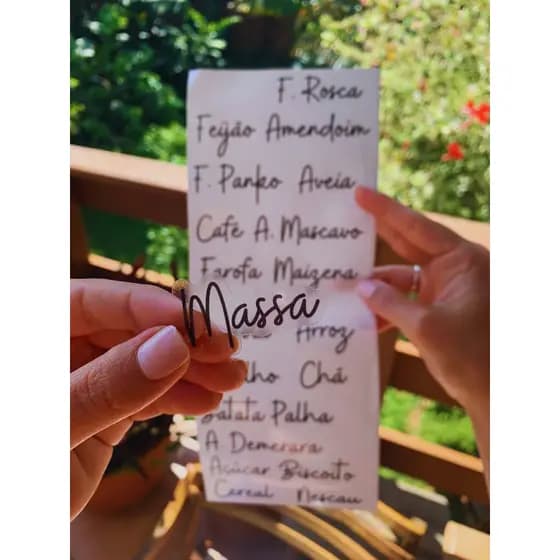 F. Rosca
Feijão Amendoim
F. Panko Aveia
Café A. Mascavo
Farofa Maizena
Massa
Arroz
Chá
Batata Palha
A Demerara
Açúcar Biscoito
Cereal Nescau